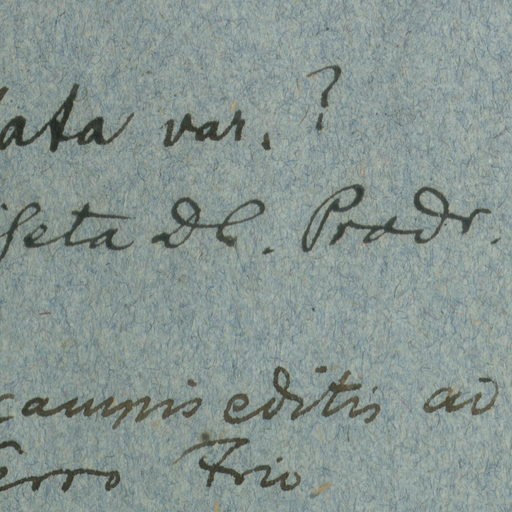 lata var. ?
iseta DC. Prodr.
campis editis ad
Cerro Frio.